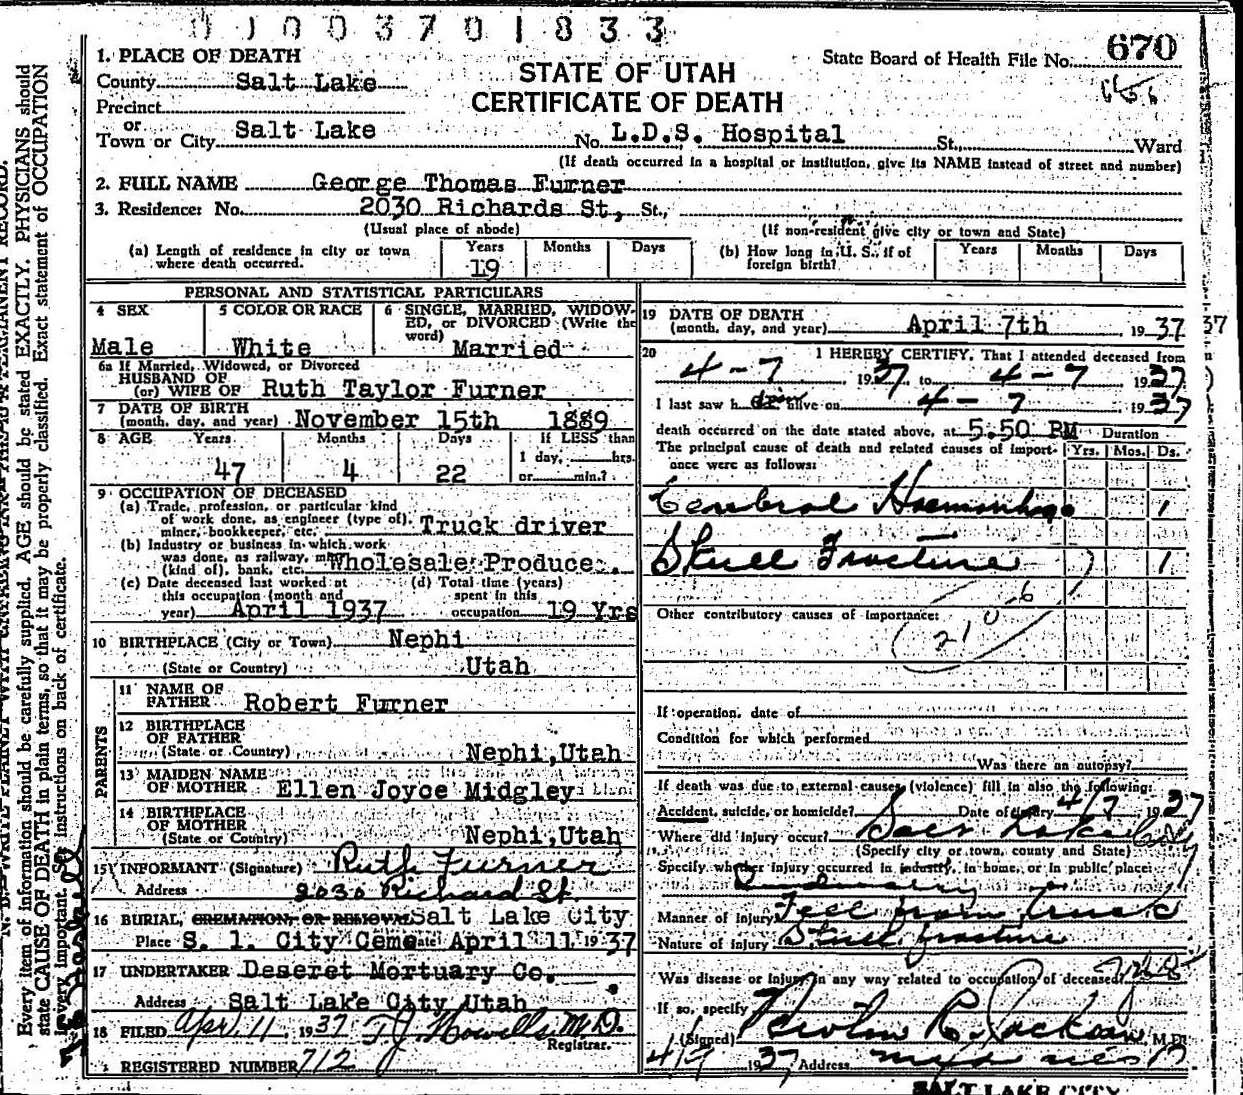 01003701833
1. PLACE OF DEATH
State Board of Health File No. 670
County Salt Lake
STATE OF UTAH
Precinct
CERTIFICATE OF DEATH
or
Town or City Salt Lake No. L.D.S. Hospital St., Ward
(If death occurred in a hospital or institution, give its NAME instead of street and number)
2. FULL NAME George Thomas Furner
3. Residence: No. 2030 Richards St, St.,
(Usual place of abode) (If non-resident give city or town and State)
(a) Length of residence in city or town where death occurred. Years 19 Months Days
(b) How long in U. S., if of foreign birth? Years Months Days
PERSONAL AND STATISTICAL PARTICULARS
4 SEX Male
5 COLOR OR RACE White
6 SINGLE, MARRIED, WIDOWED, or DIVORCED (Write the word) Married
6a If Married, Widowed, or Divorced
HUSBAND OF
(or) WIFE OF Ruth Taylor Furner
7 DATE OF BIRTH
(month, day, and year) November 15th 1889
8 AGE Years 47 Months 4 Days 22 If LESS than 1 day, hrs. or min.?
9 OCCUPATION OF DECEASED
(a) Trade, profession, or particular kind
of work done, as engineer (type of),
miner, bookkeeper, etc. Truck driver
(b) Industry or business in which work
was done, as railway, mine
(kind of), bank, etc. Wholesale Produce.
(c) Date deceased last worked at this occupation (month and year) April 1937
(d) Total time (years) spent in this occupation 19 Yrs
10 BIRTHPLACE (City or Town) Nephi
(State or Country) Utah
PARENTS
11 NAME OF FATHER Robert Furner
12 BIRTHPLACE OF FATHER
(State or Country) Nephi, Utah
13 MAIDEN NAME OF MOTHER Ellen Joyce Midgley
14 BIRTHPLACE OF MOTHER
(State or Country) Nephi, Utah
15 INFORMANT (Signature) Ruth Furner
Address 2030 Richard St.
16 BURIAL, CREMATION, OR REMOVAL Salt Lake City
Place S. l. City Ceme Date April 11 1937
17 UNDERTAKER Deseret Mortuary Co.
Address Salt Lake City Utah
18 FILED Apr 11, 1937 T.J. Howells M.D.
Registrar.
REGISTERED NUMBER 712
19 DATE OF DEATH
(month, day, and year) April 7th 1937
20 I HEREBY CERTIFY, That I attended deceased from
4-7, 1937, to 4-7, 1937
I last saw h im alive on 4-7 1937
death occurred on the date stated above, at 5:50 PM Duration
The principal cause of death and related causes of importance were as follows: Yrs. Mos. Ds.
Cerebral Haemorrhage 1
Skull Fracture 1
Other contributory causes of importance:
210-6
If operation, date of
Condition for which performed
Was there an autopsy?
If death was due to external causes (violence) fill in also the following:
Accident, suicide, or homicide? Date of injury 4/7 1937
Where did injury occur? Salt Lake City
(Specify city or town, county and State)
Specify whether injury occurred in industry, in home, or in public place:
Industry
Manner of injury Fell from truck
Nature of injury Skull fracture
Was disease or injury in any way related to occupation of deceased? Yes
If so, specify
(Signed) R. Jackson, M.D.
4/9 1937 Address
SALT LAKE CITY
Every item of information should be carefully supplied. AGE should be stated EXACTLY. PHYSICIANS should
state CAUSE OF DEATH in plain terms, so that it may be properly classified. Exact statement of OCCUPATION
is very important. See instructions on back of certificate.